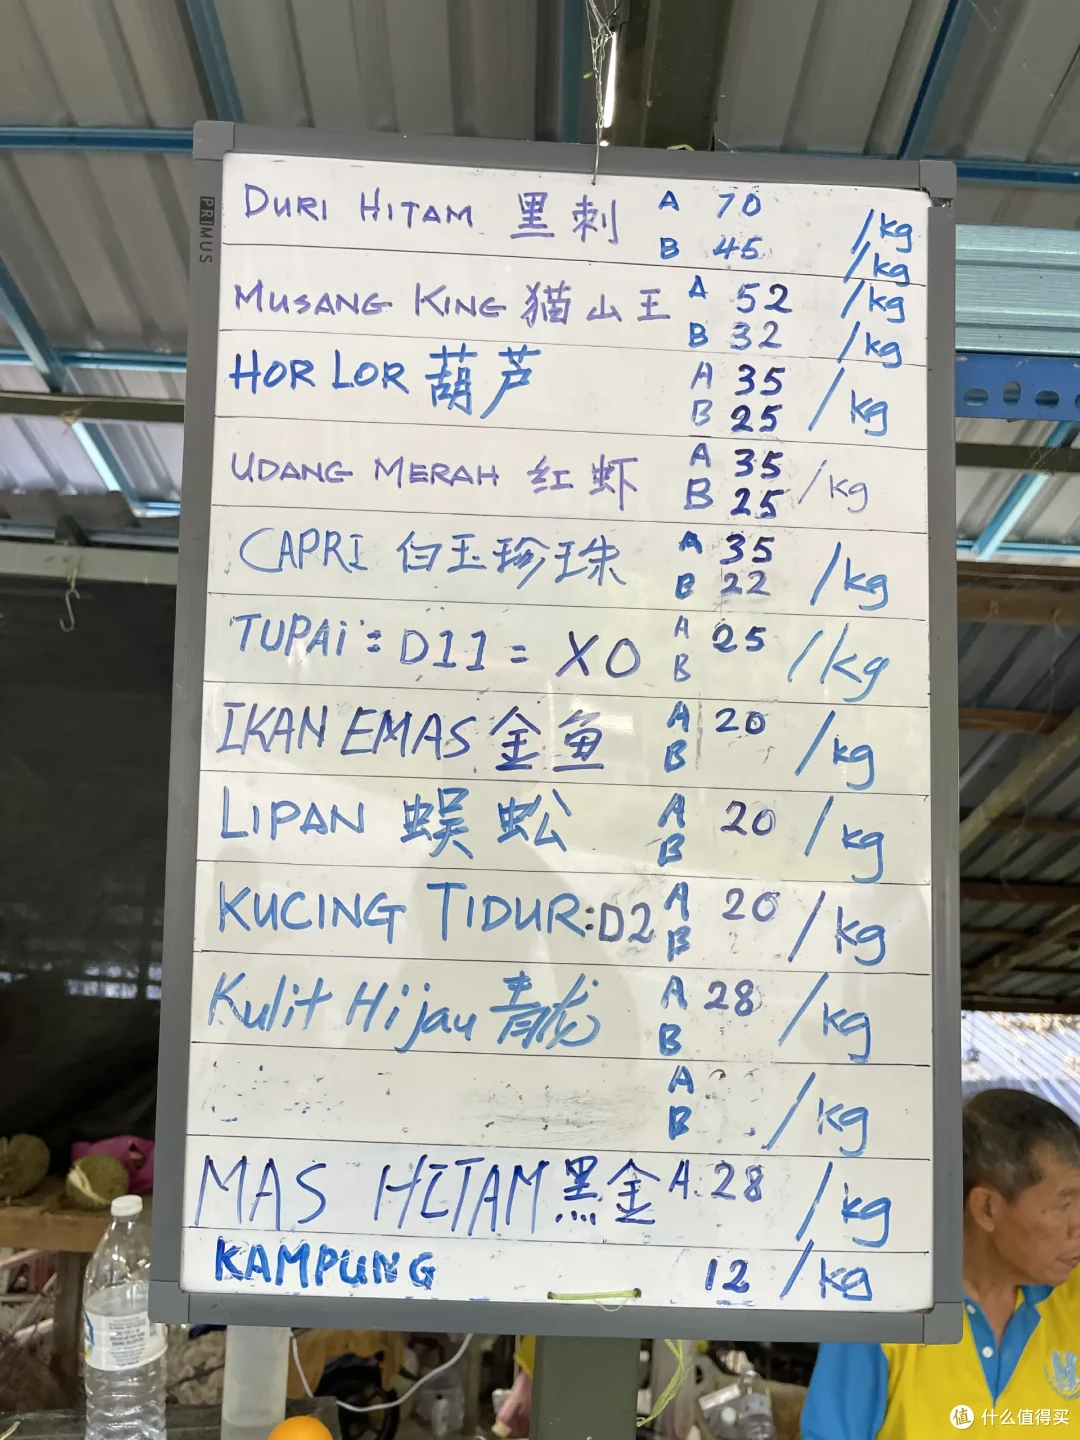 PRIMUS
DURI HITAM 黑刺 A 70 /kg
B 45 /kg
MUSANG KING 猫山王 A 52 /kg
B 32 /kg
HOR LOR 葫芦 A 35 /kg
B 25
UDANG MERAH 红虾 A 35 /kg
B 25
CAPRI 白玉珍珠 A 35 /kg
B 22
TUPAi = D11 = XO A 25 /kg
B
IKAN EMAS 金鱼 A 20 /kg
B
LIPAN 蜈蚣 A 20 /kg
B
KUCING TIDUR:D2 A 20 /kg
B
Kulit Hijau 青龙 A 28 /kg
B
A /kg
B
MAS HITAM 黑金 A 28 /kg
KAMPUNG 12 /kg
值 什么值得买